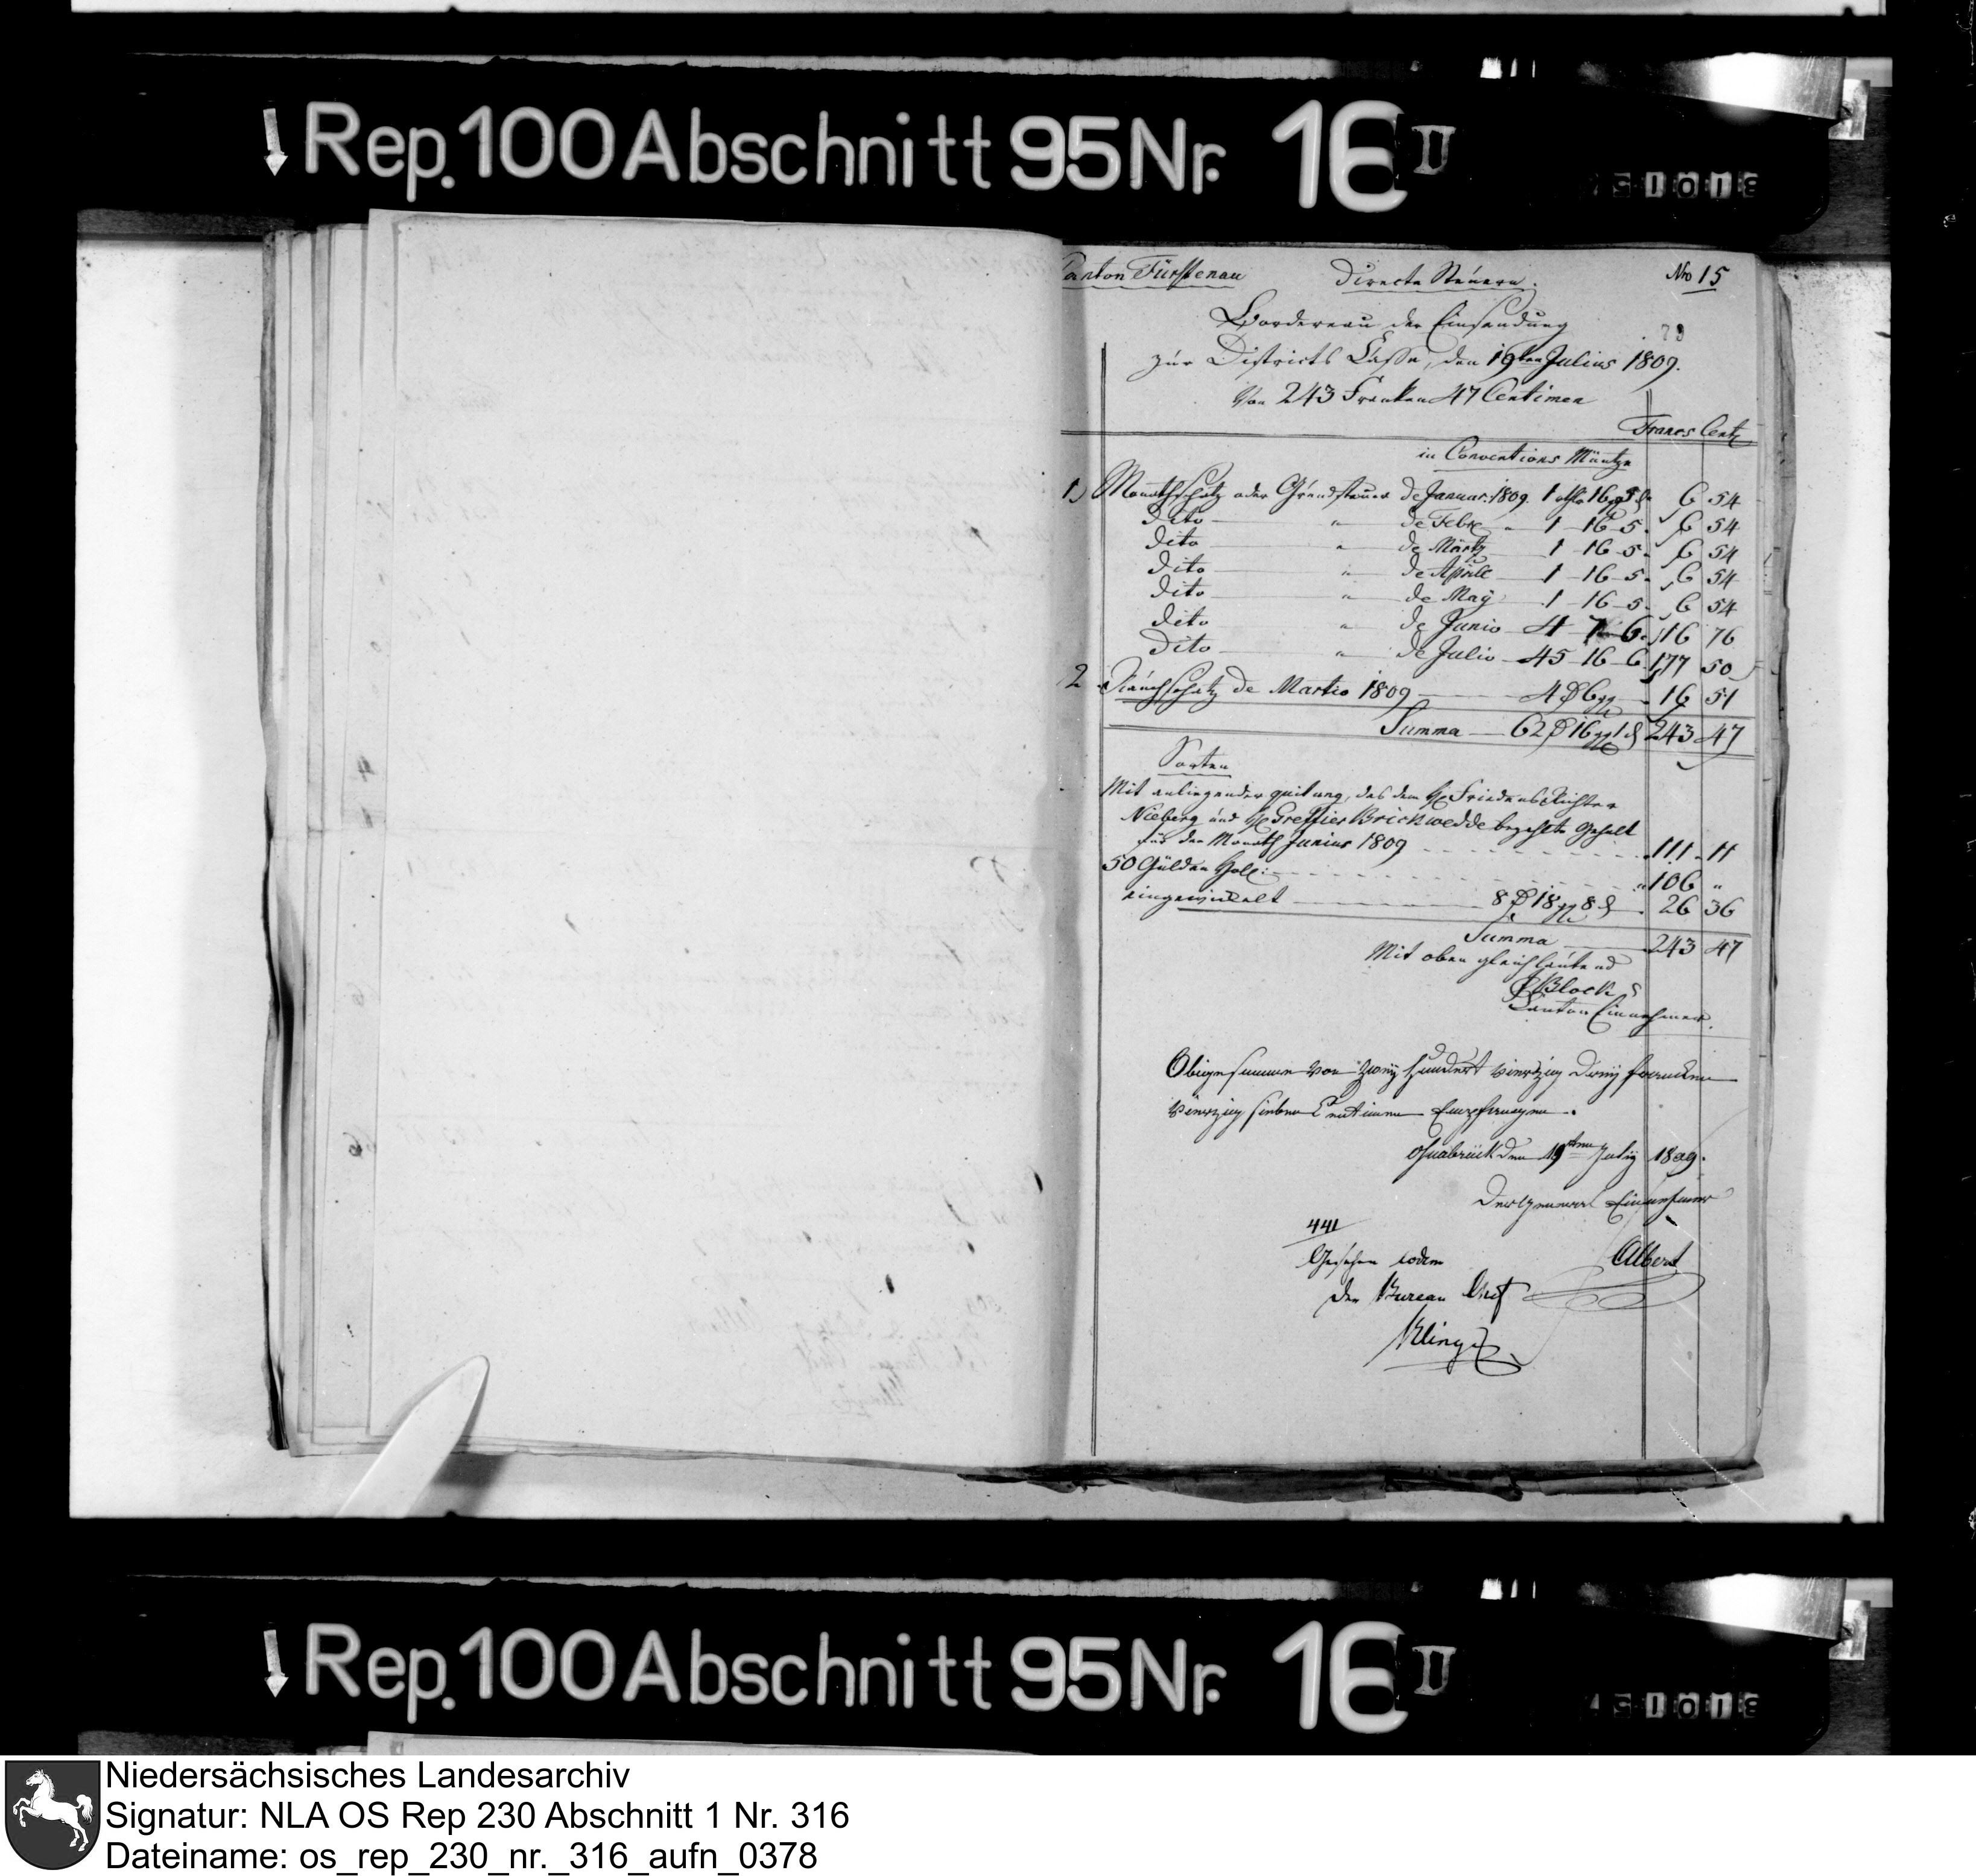 Rep. 100 Abschnitt 95 Nr. 16 II
Canton Fürstenau Directe Steuern. Nro 15
Bordereau der Einsendung
79
zur Districts Casse, den 19ten Julius 1809.
Von 243 Franken 47 Centimen
Francs Cent
in Conventions Müntze
1) Monathschatz oder Grundsteuer de Januar. 1809. 1 rthlr 16 gg 5 d 6 54
dito " de Febr. " 1 - 16 - 5 6 54
dito " de Märtz 1 - 16 - 5 6 54
dito " de Aprile 1 - 16 - 5 6 54
dito " de Maÿ 1 - 16 - 5 6 54
dito " de Junio 4 - 7 - 6 16 76
dito " de Julio 45 - 16 - 6 177 50
2 Rauchschatz de Martio 1809 4 rt 6 gg 16 51
Summa 62 rt 16 gg 1 d 243 47
Sorten
Mit anliegender quitung, das dem H. Friedens Richter
Nieberg und H. Greffier Brickwedde bezahlte Gehalt
für den Monath Junius 1809 111 11
50 Gülden Holl: 106 "
eingewickelt 8 rt 18 gg 8 d 26 36
Summa 243 47
Mit oben gleichlautend
Block
Canton Einnehmer.
Obige summe von zweÿ hundert vierzig dreÿ francken
vierzig sieben Centimen Empfangen.
Osnabrück den 19ten Julÿ 1809.
Der General Einnehmer
441
Gesehen eodem Albert
Der Bureau Chef
Klinge
Rep. 100 Abschnitt 95 Nr. 16 II
Niedersächsisches Landesarchiv
Signatur: NLA OS Rep 230 Abschnitt 1 Nr. 316
Dateiname: os_rep_230_nr._316_aufn_0378